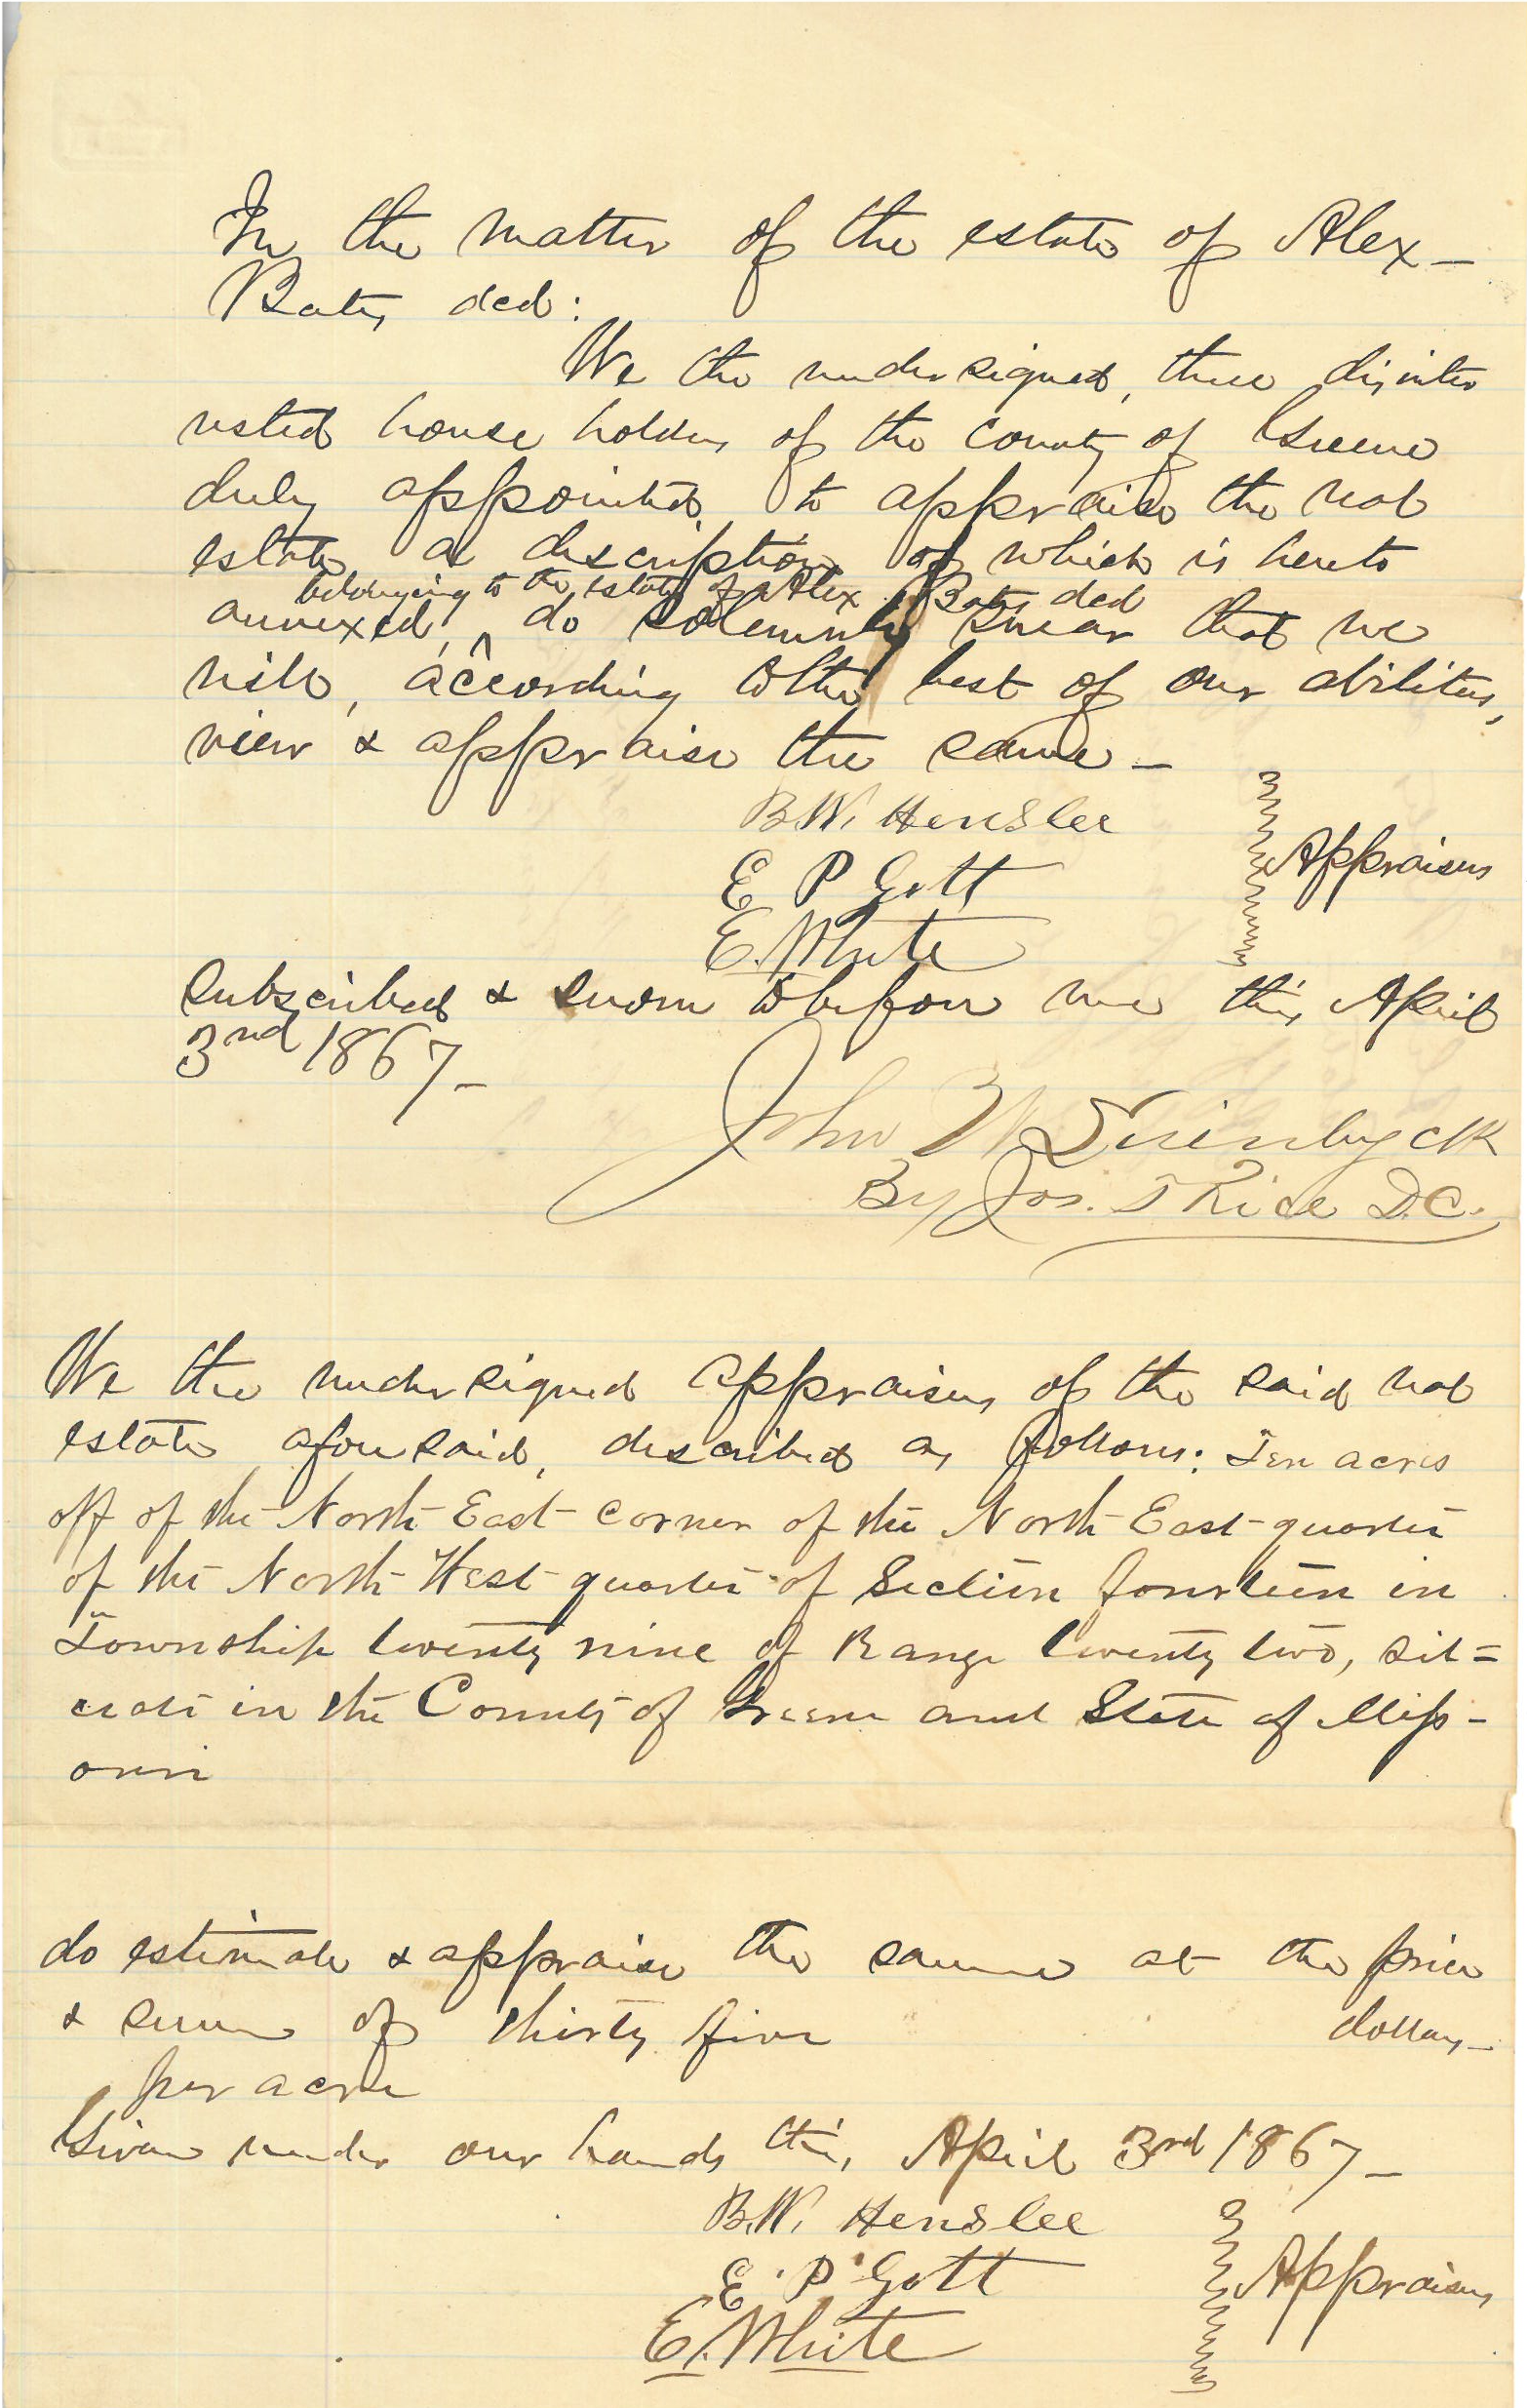 In the matter of the estate of Alex –
Bates decd:
We the undersigned, three disinter
rested house holders of the County of Greene
duly appointed to appraise the real
estate, a description of which is hereto
belonging to the estate of Alex Bates decd
annexed, ^ do solemnly swear that we
will, according to the best of our abilities,
view & appraise the same –
B.W. Henslee
Appraisers
E P Gott
E. White
Subscribed & sworn to before me this April
3rd 1867 –
John W
By Jos. T Rice D.C.
We the undersigned appraisers of the said real
estate aforesaid, described as follows: Ten acres
off of the North East corner of the North East quarter
of the North West quarter of Section fourteen in
Township twenty nine of Range twenty two, sit=
uate in the County of Greene and State of Miss-
ouri
do estimate & appraise the same at the price
& sum of thirty five dollars –
per acre
Given under our hands this April 3rd 1867 –
B.W. Henslee
E. P. Gott
Appraisers
E. White